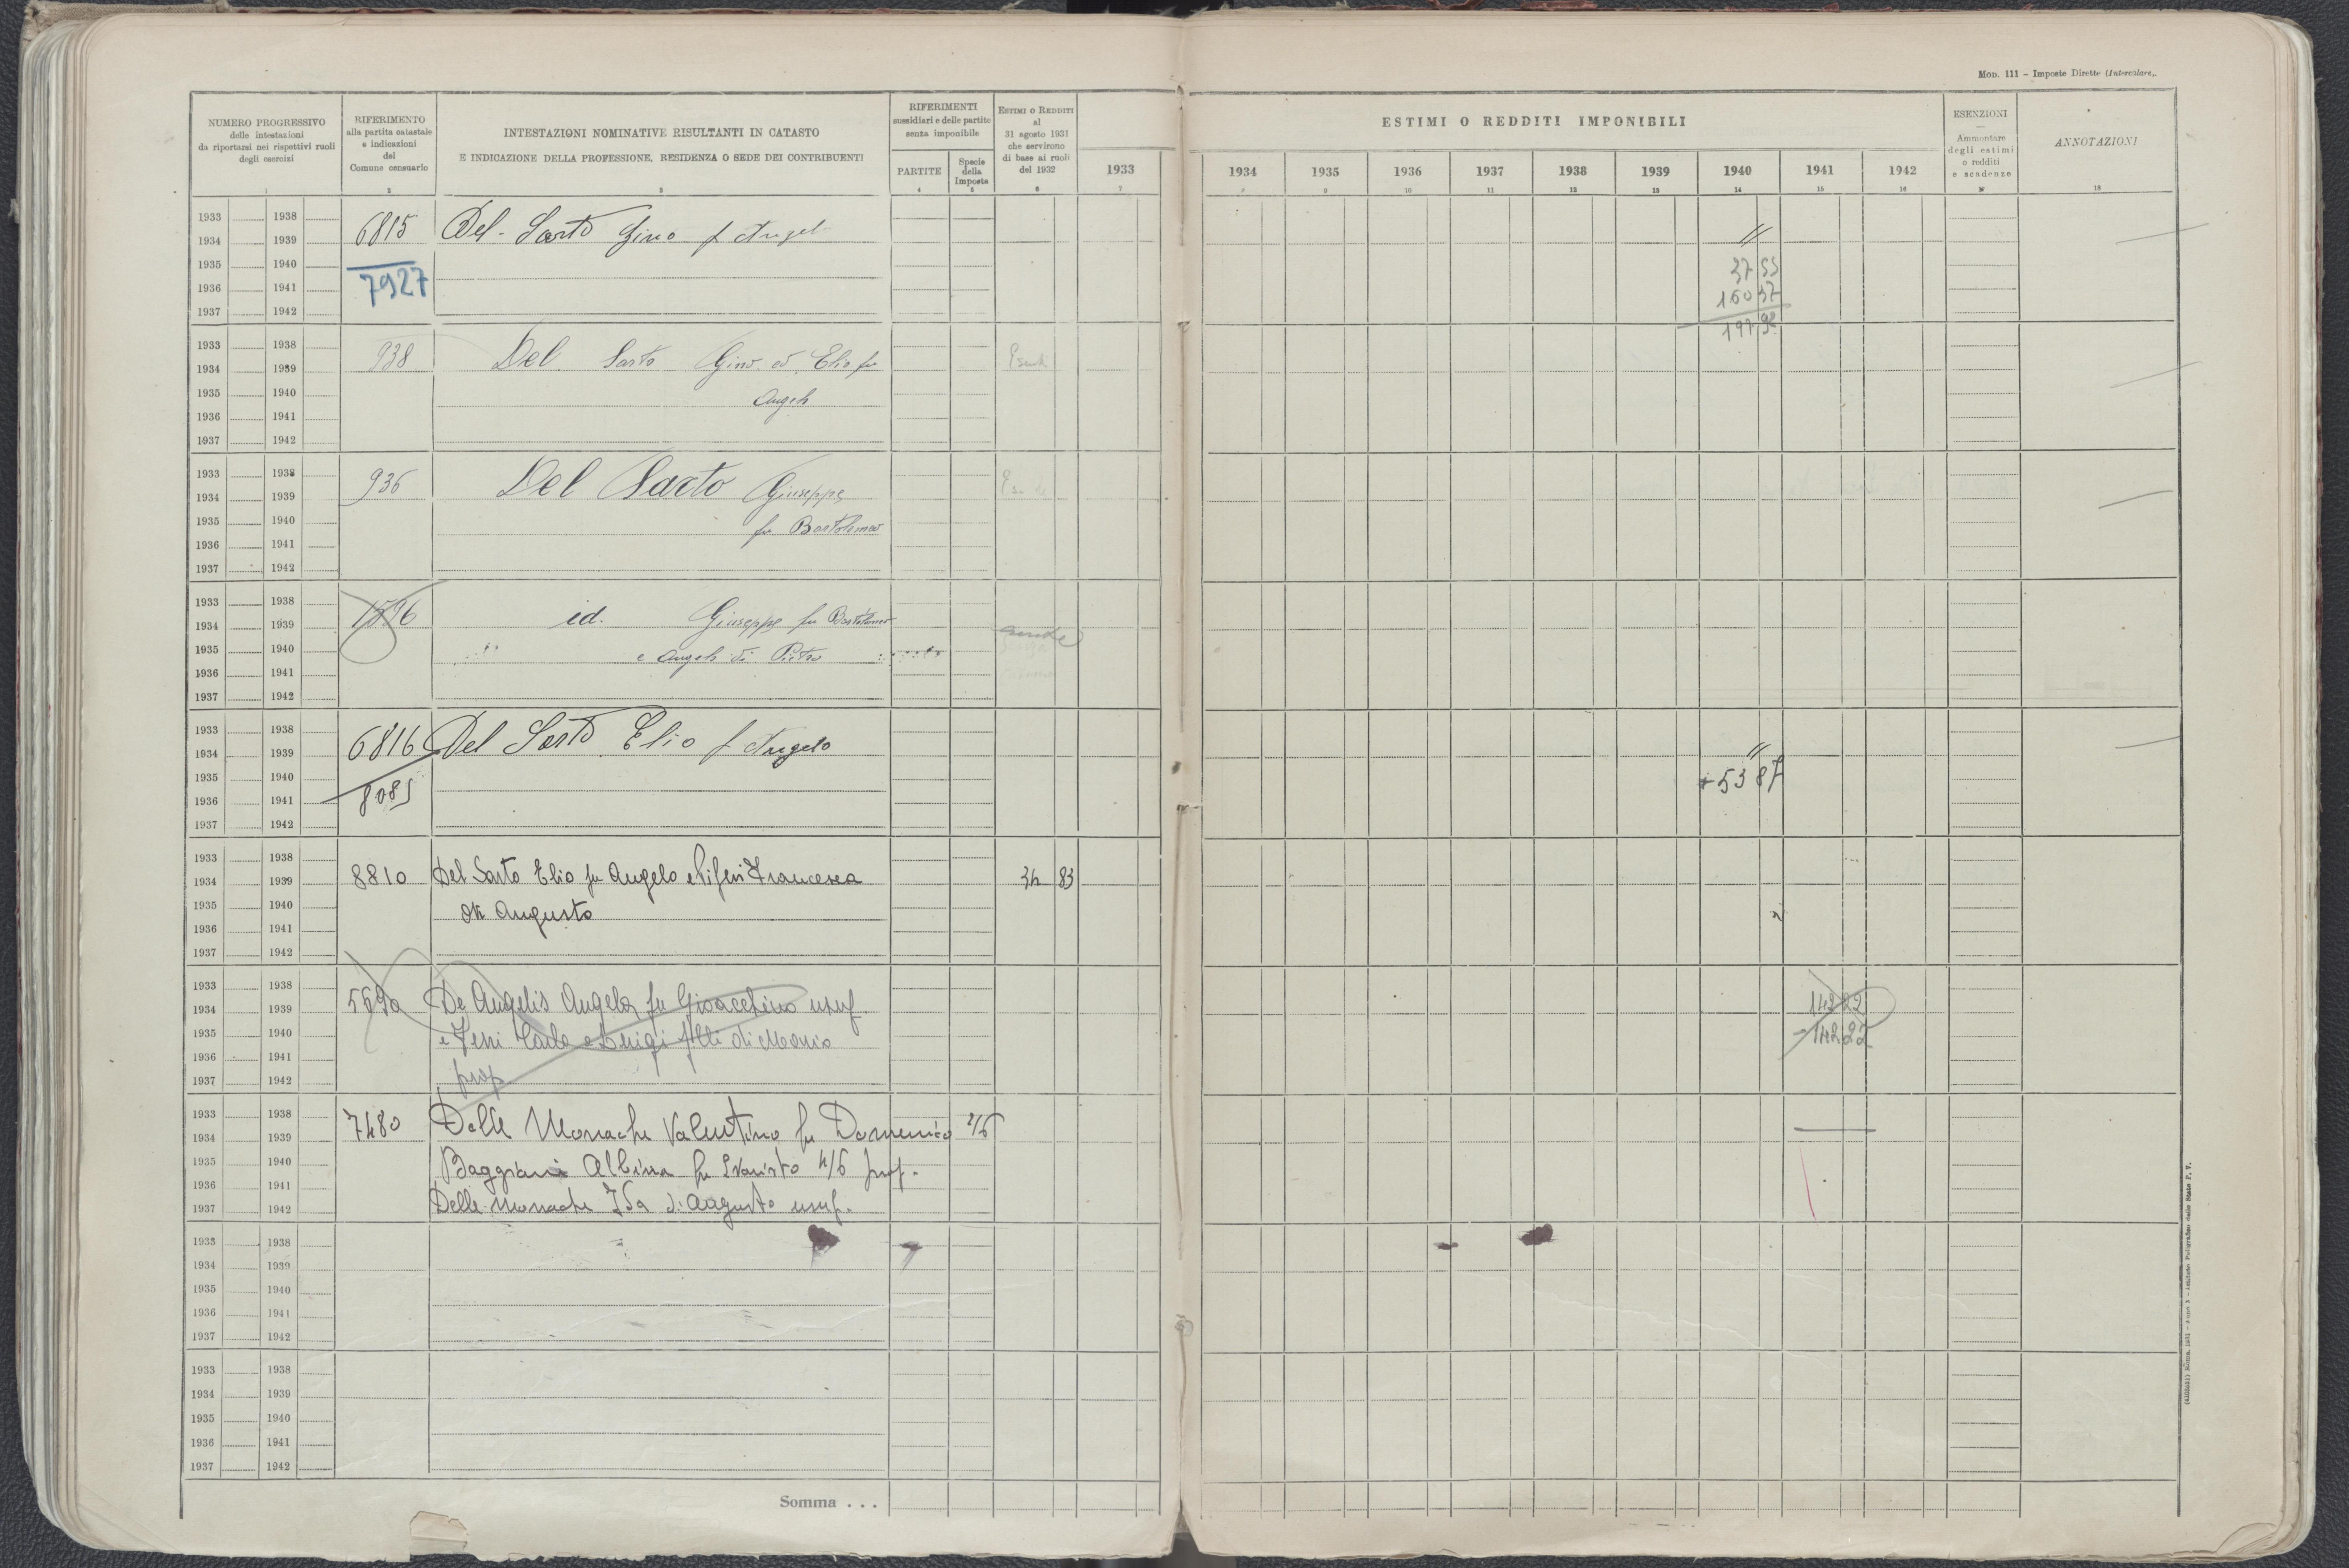 Mod. 111 - Imposte Dirette (Intercalare).
NUMERO PROGRESSIVO
delle intestazioni
da riportarsi nei rispettivi ruoli
degli esercizi
1
RIFERIMENTO
alla partita catastale
e indicazioni
del
Comune censuario
2
INTESTAZIONI NOMINATIVE RISULTANTI IN CATASTO
E INDICAZIONE DELLA PROFESSIONE, RESIDENZA O SEDE DEI CONTRIBUENTI
3
RIFERIMENTI
sussidiari e delle partite
senza imponibile
PARTITE
4
Specie
della
Imposta
5
ESTIMI O REDDITI
al
31 agosto 1931
che servirono
di base ai ruoli
del 1932
6
1933
7
ESTIMI O REDDITI IMPONIBILI
1934 1935 1936 1937 1938 1939 1940 1941 1942
9 10 11 12 13 14 15 16
ESENZIONI
—
Ammontare
degli estimi
o redditi
e scadenze
ANNOTAZIONI
18
1933 1938
1934 1939 6815 Del Sarto Gino f Angel "
1935 1940 37 55
1936 1941 7927 160 37
1937 1942 197 92
1933 1938
1934 1939 938 Del Sarto Gino ed Elio fu
1935 1940 Angelo
1936 1941
1937 1942
1933 1938
1934 1939 936 Del Sarto Giuseppe
1935 1940 fu Bartolomeo
1936 1941
1937 1942
1933 1938
1934 1939 id. Giuseppe fu Bartolomeo
1935 1940 e Angelo di Pietro
1936 1941
1937 1942
1933 1938
1934 1939 6816 Del Sarto Elio f Angelo "
1935 1940 +53 87
1936 1941 8085
1937 1942
1933 1938
1934 1939 8810 Del Sarto Elio fu Angelo e Francesca 34 83
1935 1940 di Augusto
1936 1941
1937 1942
1933 1938
1934 1939 De Angelis Angela fu Gioacchino usuf. 142 22
1935 1940 e Carlo e Luigi flli di Mario -142 22
1936 1941
1937 1942 prop
1933 1938
1934 1939 7480 Delle Monache Valentino fu Domenico 2/6
1935 1940 Baggiani Albina fu Evaristo 4/6 prop.
1936 1941
1937 1942 Delle Monache Isa di Augusto usuf.
1933 1938
1934 1939
1935 1940
1936 1941
1937 1942
1933 1938
1934 1939
1935 1940
1936 1941
1937 1942
Somma . . .